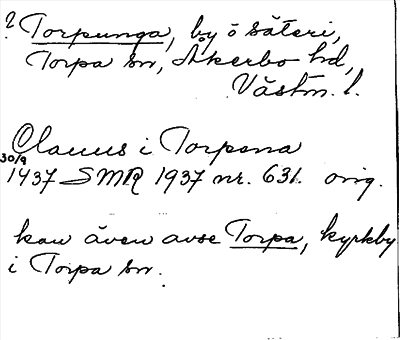 ? Torpunga, by o säteri,
Torpa sn, Åkerbo hd,
Västm. l.
Claues i Torpona
30/9
1437 SMR 1937 nr. 631. orig.
kan även avse Torpa, kyrkby
i Torpa sn.